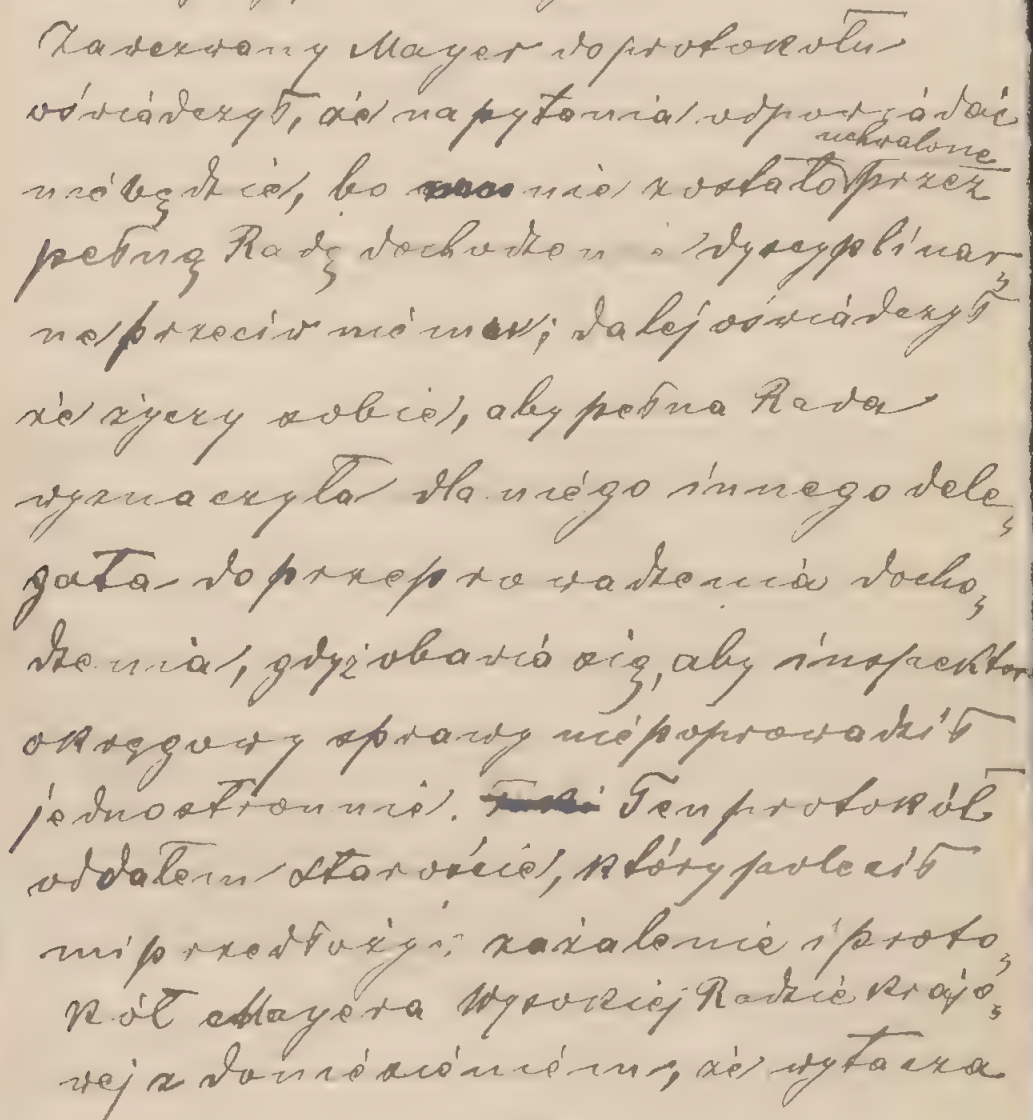 Zawezwany Mayer do protokołu
oświadczył, że na pytania odpowiadać
uchwalone
nie będzie, bo nie zostało przez
pełną Radę dochodzenie dyscyplinar„
ne przeciw niemu; dalej oświadczył
że życzy sobie, aby pełna Rada
wyznaczyła dla niego innego dele„
gata do przeprowadzenia docho„
dzenia, gdyż obawia się, aby inspektor
okręgowy sprawy nie poprowadził
jednostronnie. Ten protokół
oddałem staroście, który polecił
mi przedłożyć zażalenie i proto„
kół Mayera Wysokiej Radzie krajo„
wej z doniesieniem, że wytacza